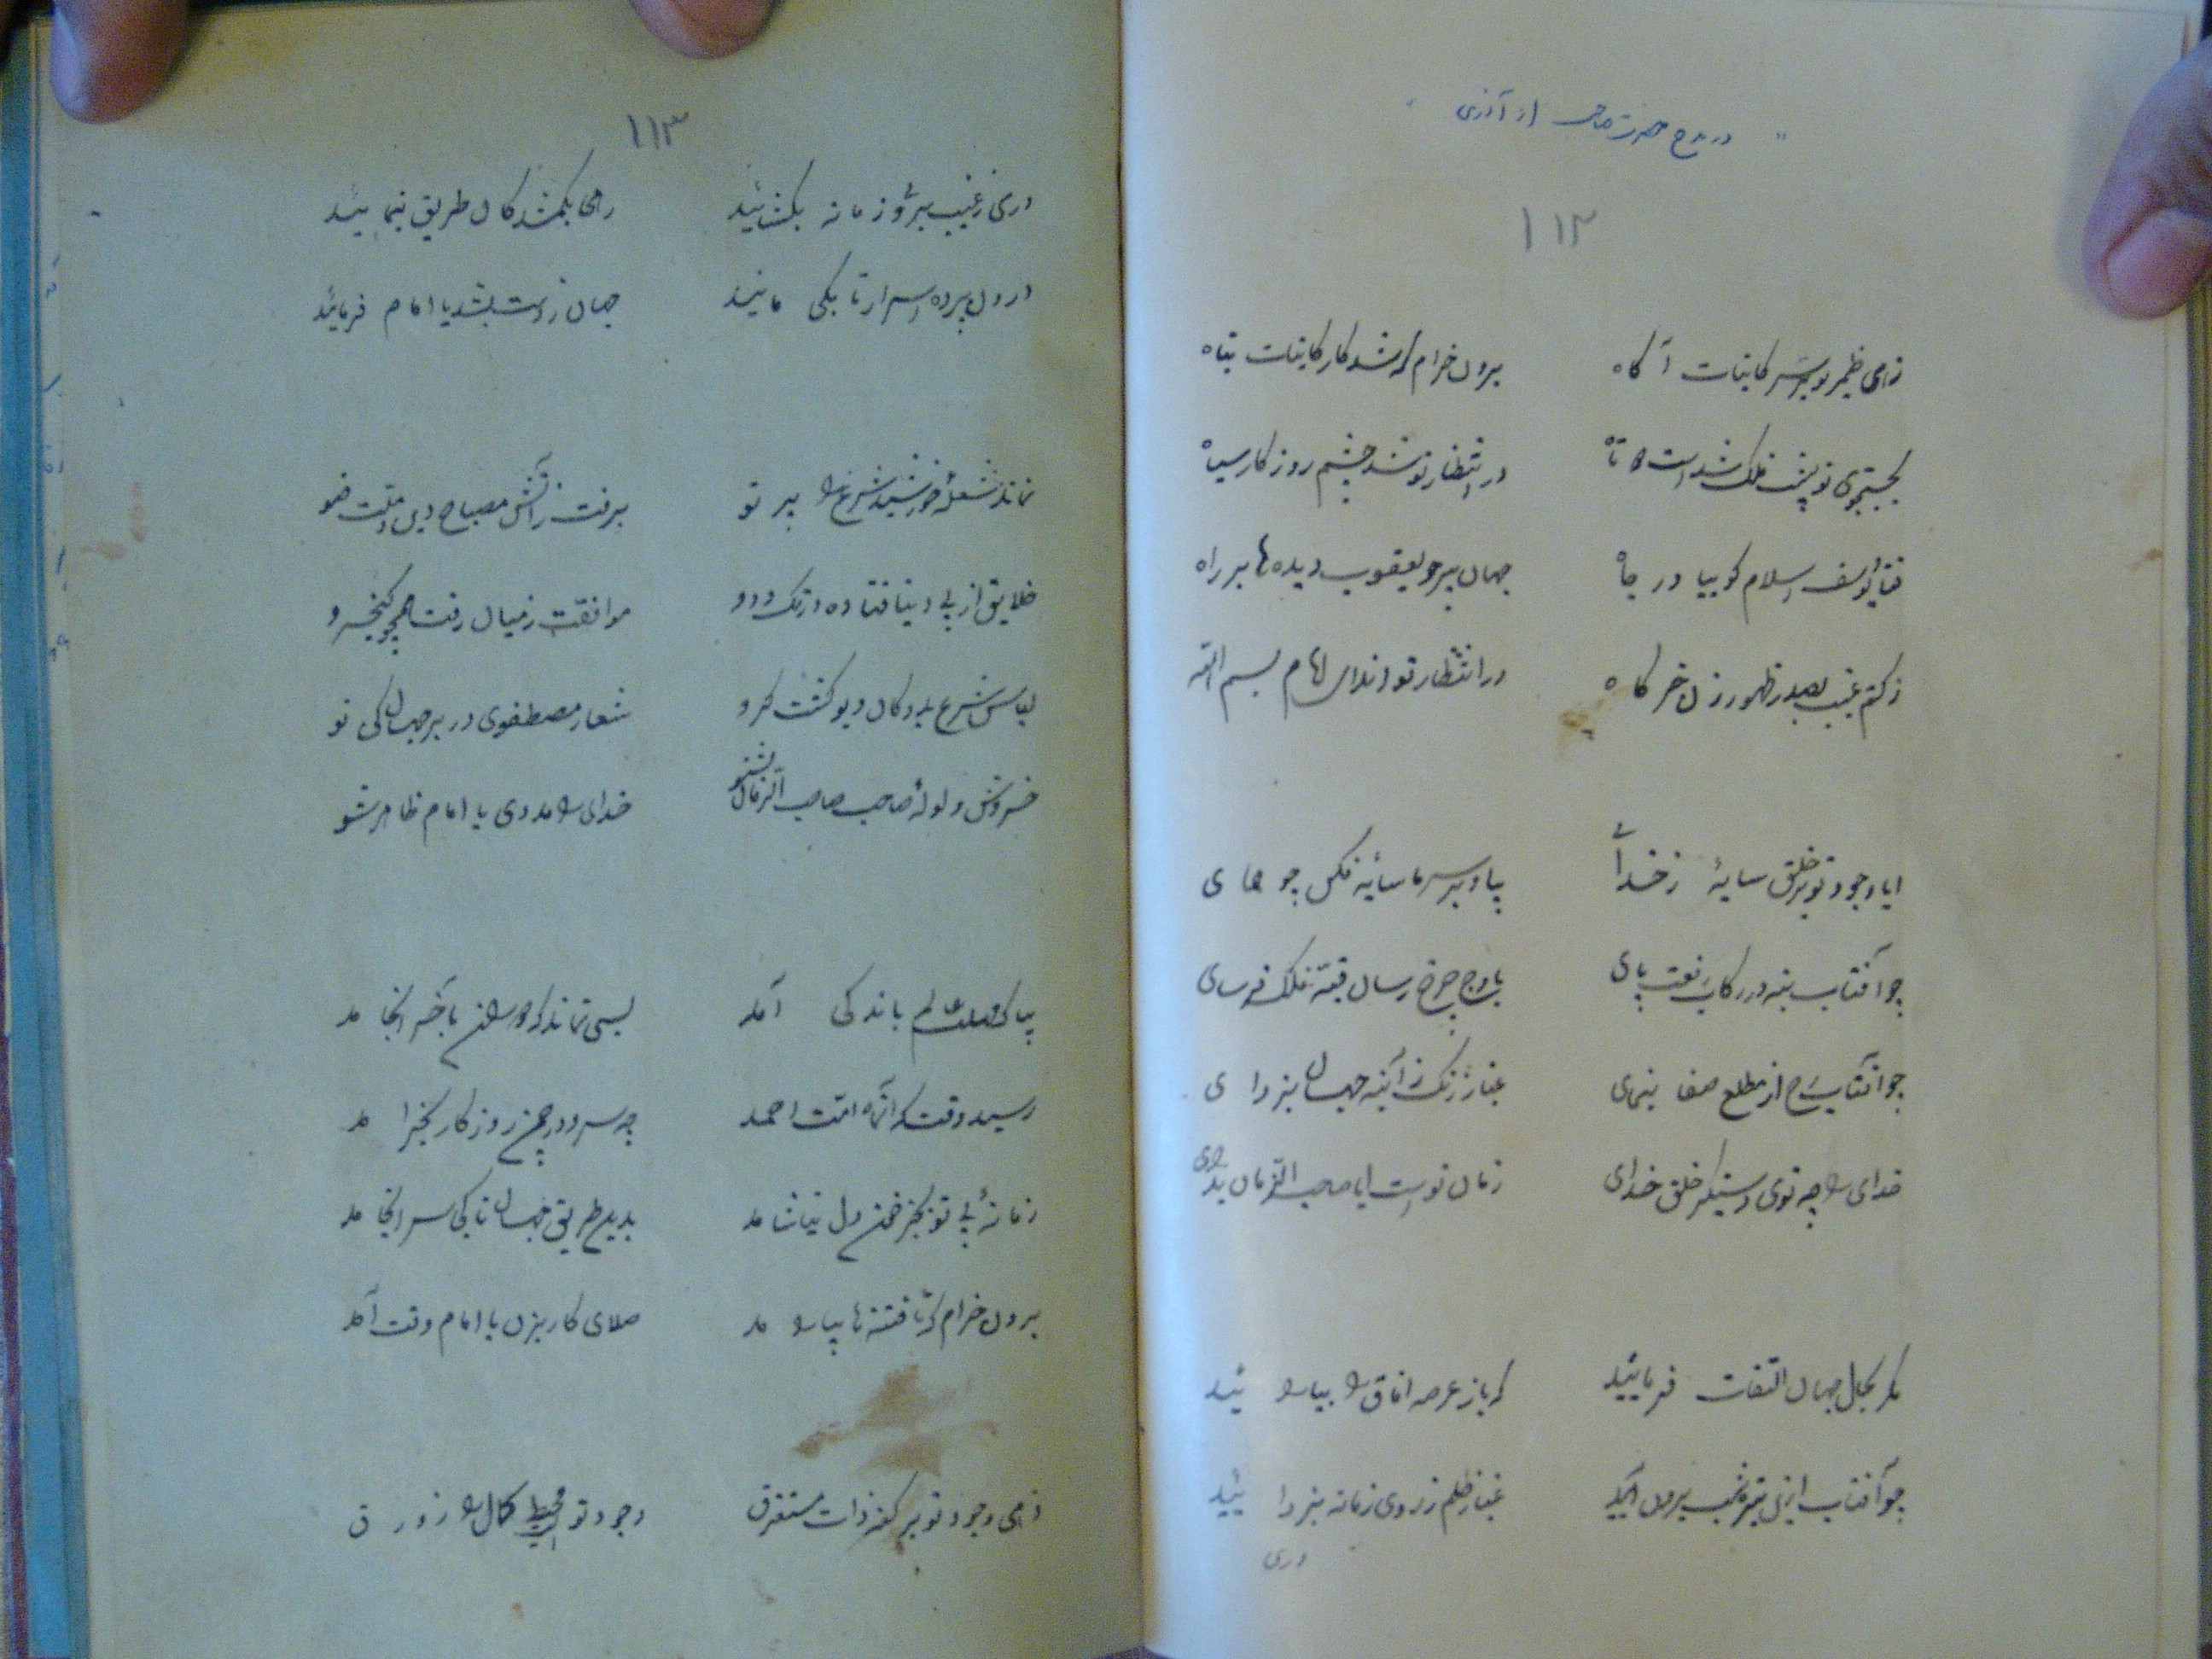 " در مدح حضرت صاحب از آذری "
۱۱۲
زهی ضمیر تو بر سر کاینات آگاه برون خرام که شد کار کاینات تباه
بجستجوی تو پشت فلک شد است دو تاه در انتظار تو شد چشم روزگار سیاه
فتاد یوسف اسلام گوییا در چاه جهان پیر چو یعقوب دیده ها بر راه
ز کتم غیب بصدر ظهور زن خرگاه در انتظار تواند ای امام بسم الله
ایا وجود تو بر خلق سایهٔ ز خدای بیا و بر سر ما سایه فکن چو همای
چو آفتاب بنه در رکاب رفعت پای باوج چرخ رسان قبهٔ فلک فرسای
چو آفتاب رخ از مطلع صفا بنمای غبار زنگ ز آینه جهان بزدای
خدای را چه توی دستگیر خلق خدای زمان تو است ایا صاحب الزمان بدر آی
مگر بحال جهان التفات فرمایید که باز عرصه آفاق را بیارائید
چو آفتاب ازین تیره شب برون آیید غبار ظلم ز روی زمانه بزدائید
دری
۱۱۳
دری ز غیب بروی زمانه بکشائید رهی بگمشدگان طریق بنمائید
درون پرده اسرار تا بکی مانید جهان ز دست بشد یا امام فرمائید
نماند شعلهٔ خورشید شرع را پرتو برفت ز آتش مصباح دین و ملت ضو
خلایق از پی دنیا فتاده در تک و دو موافقت ز میان رفت همچو کیخسرو
لباس شرع بدوکان دیو گشت گرو شعار مصطفوی در بر جهان کن نو
خروش و لولهٔ صاحب صاحب الزمان بشنو خدای را مددی یا امام ظاهر شو
بیا که مهلت عالم باندکی آمد بسی نماند که دوران باخر انجامد
رسید وقت که از ماه امت احمد چه سرو در چمن روزگار بخرامد
زمانهٔ بی تو بجز خون دل نیاشامد بدین طریق جهان تا بکی سر انجامد
برون خرام که تا فتنه ها بیارامد صلای کار بزن یا امام وقت آمد
زهی وجود تو بر کنه ذات مستغرق وجود تو محیط کمال را زورق